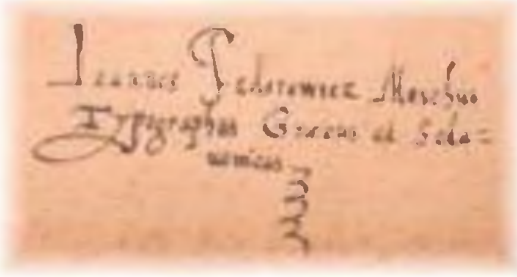 Ioannes Fedorowicz Moschus
Typographus Græcus et Scla=
uonicus